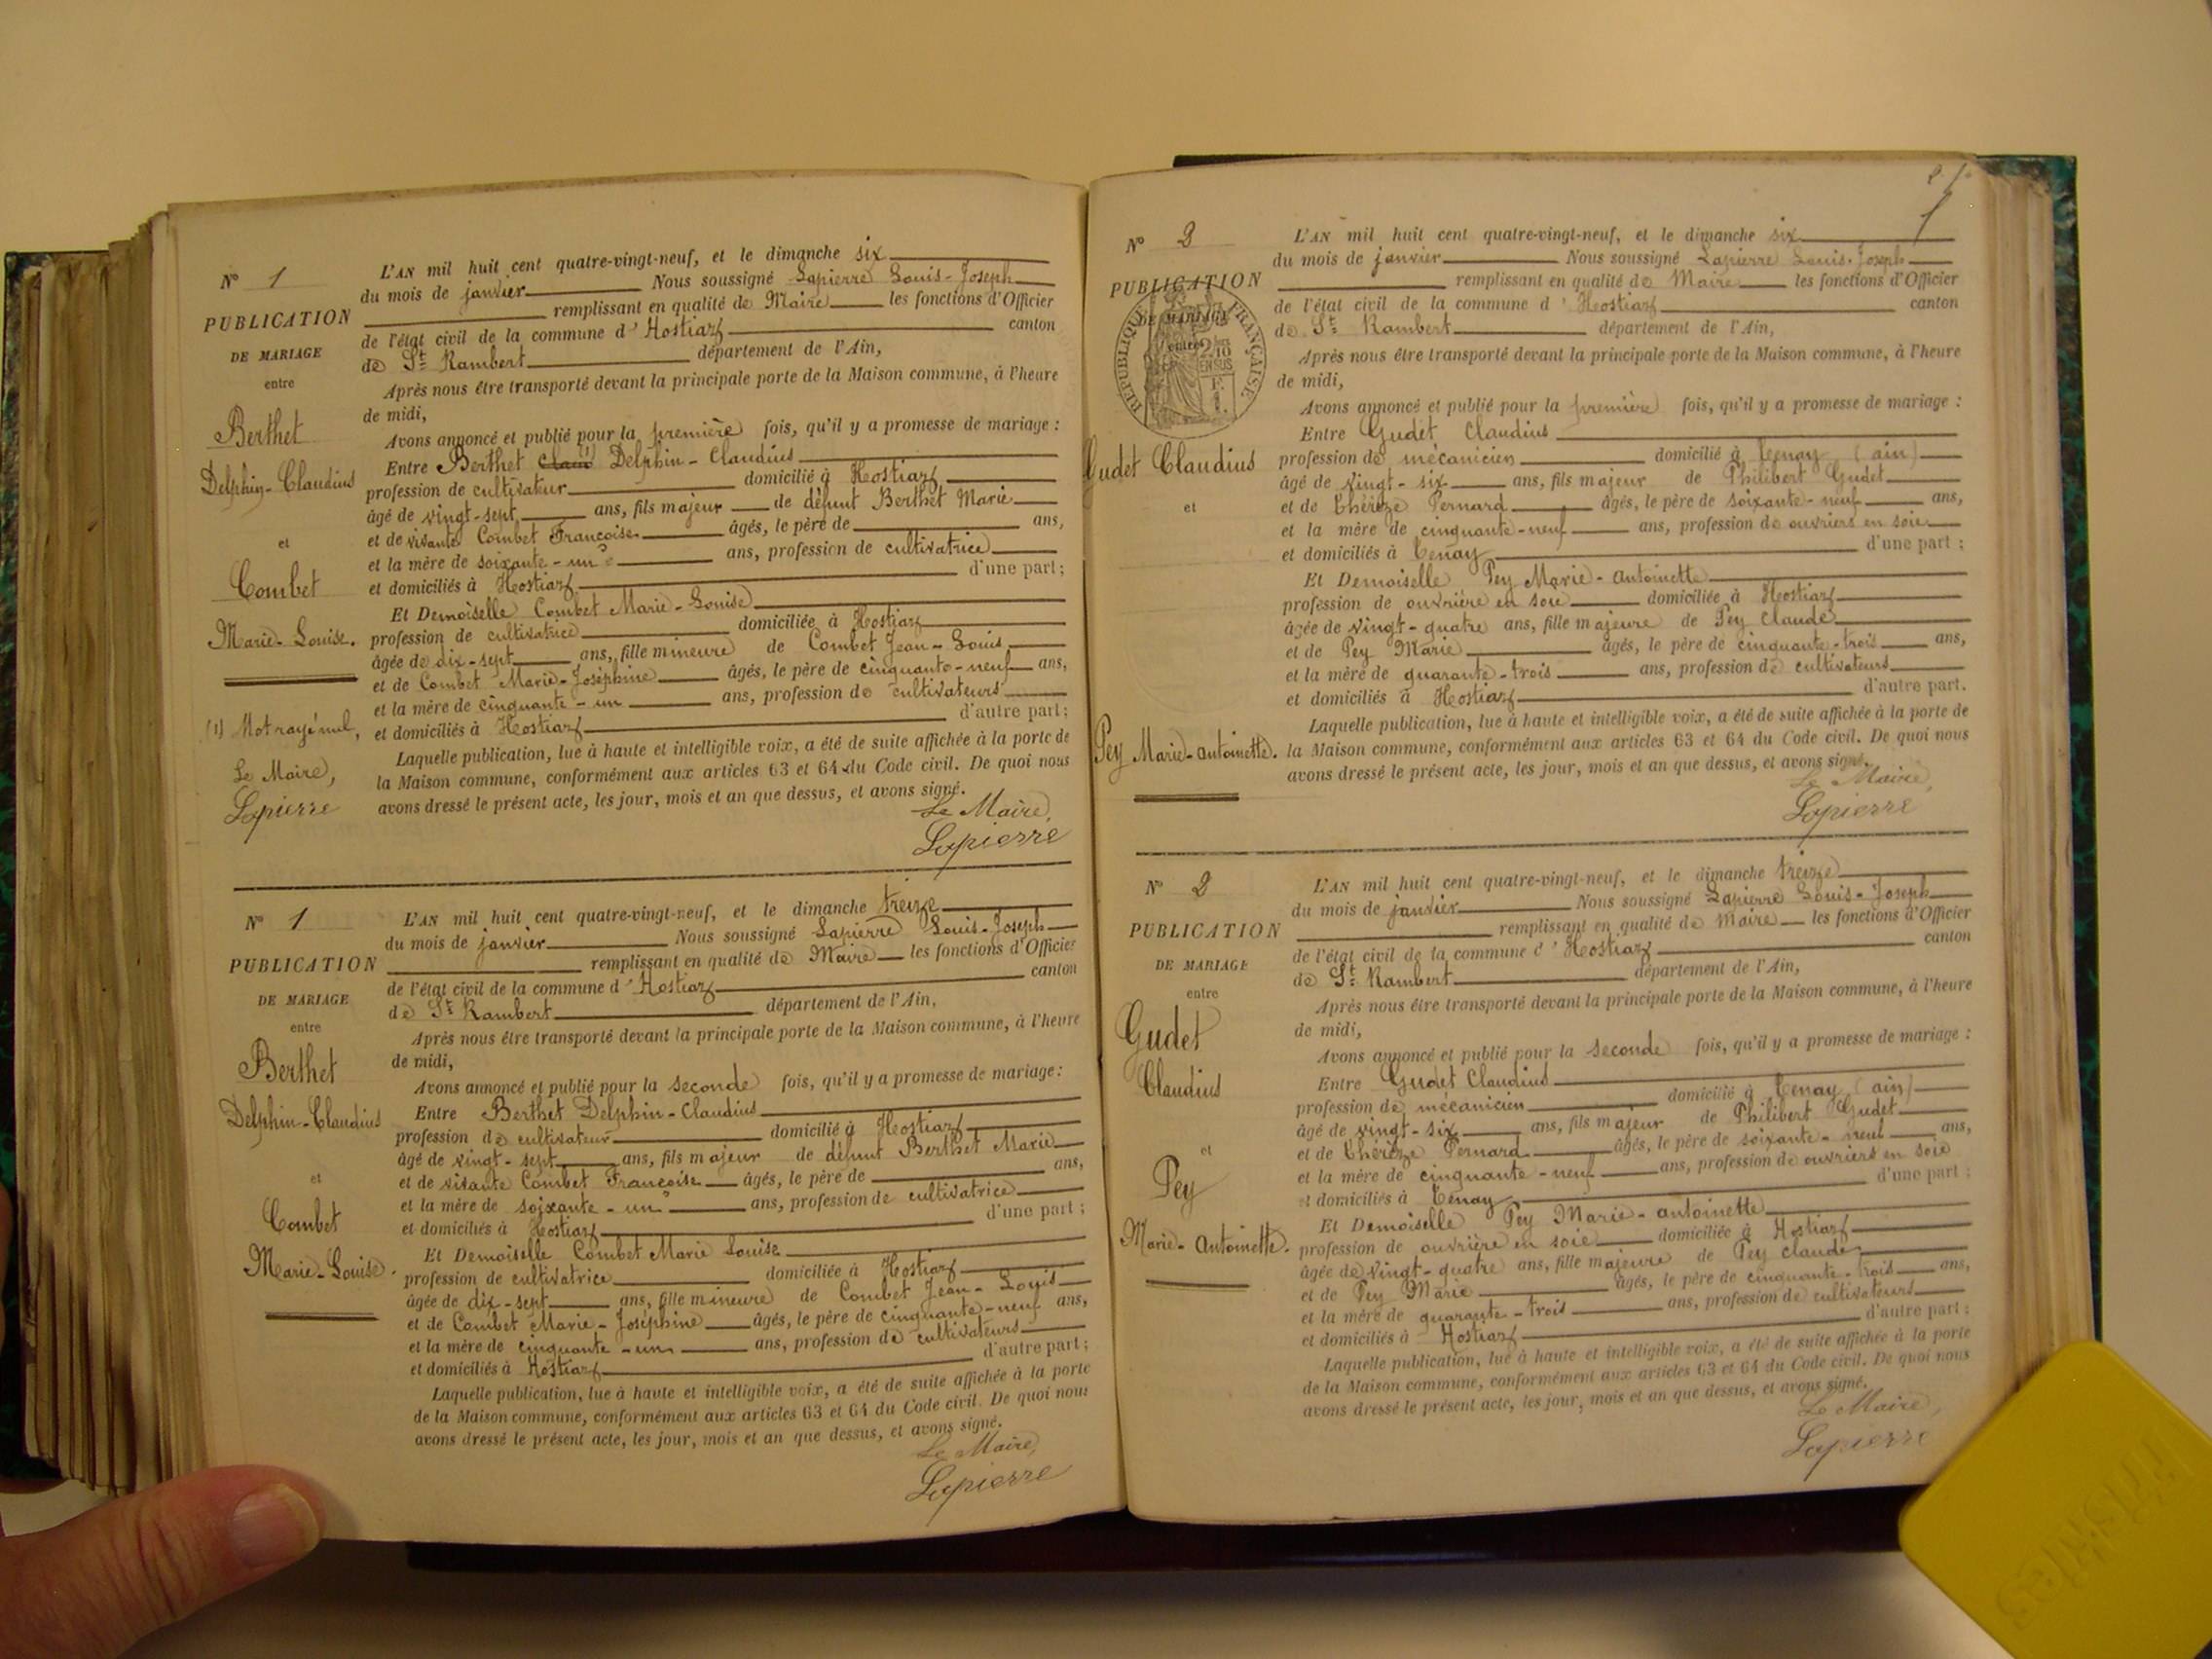 N° 1
PUBLICATION
DE MARIAGE
entre
Berthet
Delphin-Claudius
et
Combet
Marie-Louise.
(1) Mot rayé nul,
Le Maire,
Lapierre
L'AN mil huit cent quatre-vingt-neuf, et le dimanche six
du mois de janvier Nous soussigné Lapierre Louis-Joseph
remplissant en qualité de Maire les fonctions d'Officier
de l'état civil de la commune d' Hostiaz canton
de St Rambert département de l'Ain,
Après nous être transporté devant la principale porte de la Maison commune, à l'heure
de midi,
Avons annoncé et publié pour la première fois, qu'il y a promesse de mariage :
Entre Berthet (1) Delphin-Claudius
profession de cultivateur domicilié à Hostiaz
âgé de vingt-sept ans, fils majeur de défunt Berthet Marie
et de vivante Combet Françoise âgés, le père de ans,
et la mère de soixante-un ans, profession de cultivatrice
et domiciliés à Hostiaz d'une part ;
Et Demoiselle Combet Marie-Louise
profession de cultivatrice domiciliée à Hostiaz
âgée de dix-sept ans, fille mineure de Combet Jean-Louis
et de Combet Marie-Joséphine âgés, le père de cinquante-neuf ans,
et la mère de cinquante-un ans, profession de cultivateurs
et domiciliés à Hostiaz d'autre part ;
Laquelle publication, lue à haute et intelligible voix, a été de suite affichée à la porte de
la Maison commune, conformément aux articles 63 et 64 du Code civil. De quoi nous
avons dressé le présent acte, les jour, mois et an que dessus, et avons signé.
Le Maire,
Lapierre
N° 1
PUBLICATION
DE MARIAGE
entre
Berthet
Delphin-Claudius
et
Combet
Marie-Louise.
L'AN mil huit cent quatre-vingt-neuf, et le dimanche treize
du mois de janvier Nous soussigné Lapierre Louis-Joseph
remplissant en qualité de Maire les fonctions d'Officier
de l'état civil de la commune d' Hostiaz canton
de St Rambert département de l'Ain,
Après nous être transporté devant la principale porte de la Maison commune, à l'heure
de midi,
Avons annoncé et publié pour la seconde fois, qu'il y a promesse de mariage :
Entre Berthet Delphin-Claudius
profession de cultivateur domicilié à Hostiaz
âgé de vingt-sept ans, fils majeur de défunt Berthet Marie
et de vivante Combet Françoise âgés, le père de ans,
et la mère de soixante-un ans, profession de cultivatrice
et domiciliés à Hostiaz d'une part ;
Et Demoiselle Combet Marie Louise
profession de cultivatrice domiciliée à Hostiaz
âgée de dix-sept ans, fille mineure de Combet Jean-Louis
et de Combet Marie-Joséphine âgés, le père de cinquante-neuf ans,
et la mère de cinquante-un ans, profession de cultivateurs
et domiciliés à Hostiaz d'autre part ;
Laquelle publication, lue à haute et intelligible voix, a été de suite affichée à la porte
de la Maison commune, conformément aux articles 63 et 64 du Code civil. De quoi nous
avons dressé le présent acte, les jour, mois et an que dessus, et avons signé.
Le Maire,
Lapierre
N° 2
PUBLICATION
DE MARIAGE
entre
RÉPUBLIQUE FRANÇAISE
2/10
EN SUS
Gudet Claudius
et
Pey Marie-Antoinette.
L'AN mil huit cent quatre-vingt-neuf, et le dimanche six
du mois de janvier Nous soussigné Lapierre Louis-Joseph
remplissant en qualité de Maire les fonctions d'Officier
de l'état civil de la commune d' Hostiaz canton
de St Rambert département de l'Ain,
Après nous être transporté devant la principale porte de la Maison commune, à l'heure
de midi,
Avons annoncé et publié pour la première fois, qu'il y a promesse de mariage :
Entre Gudet Claudius
profession de mécanicien domicilié à Tenay (ain)
âgé de vingt-six ans, fils majeur de Philibert Gudet
et de Thérèze Pernard âgés, le père de soixante-neuf ans,
et la mère de cinquante-neuf ans, profession de ouvriers en soie
et domiciliés à Tenay d'une part ;
Et Demoiselle Pey Marie-Antoinette
profession de ouvrière en soie domiciliée à Hostiaz
âgée de vingt-quatre ans, fille majeure de Pey Claude
et de Pey Marie âgés, le père de cinquante-trois ans,
et la mère de quarante-trois ans, profession de cultivateurs
et domiciliés à Hostiaz d'autre part.
Laquelle publication, lue à haute et intelligible voix, a été de suite affichée à la porte de
la Maison commune, conformément aux articles 63 et 64 du Code civil. De quoi nous
avons dressé le présent acte, les jour, mois et an que dessus, et avons signé.
Le Maire,
Lapierre
N° 2
PUBLICATION
DE MARIAGE
entre
Gudet
Claudius
et
Pey
Marie-Antoinette.
L'AN mil huit cent quatre-vingt-neuf, et le dimanche treize
du mois de janvier Nous soussigné Lapierre Louis-Joseph
remplissant en qualité de Maire les fonctions d'Officier
de l'état civil de la commune d' Hostiaz canton
de St Rambert département de l'Ain,
Après nous être transporté devant la principale porte de la Maison commune, à l'heure
de midi,
Avons annoncé et publié pour la seconde fois, qu'il y a promesse de mariage :
Entre Gudet Claudius
profession de mécanicien domicilié à Tenay (ain)
âgé de vingt-six ans, fils majeur de Philibert Gudet
et de Thérèze Pernard âgés, le père de soixante-neuf ans,
et la mère de cinquante-neuf ans, profession de ouvriers en soie
et domiciliés à Tenay d'une part ;
Et Demoiselle Pey Marie-antoinette
profession de ouvrière en soie domiciliée à Hostiaz
âgée de vingt-quatre ans, fille majeure de Pey Claude
et de Pey Marie âgés, le père de cinquante-trois ans,
et la mère de quarante-trois ans, profession de cultivateurs
et domiciliés à Hostiaz d'autre part ;
Laquelle publication, lue à haute et intelligible voix, a été de suite affichée à la porte
de la Maison commune, conformément aux articles 63 et 64 du Code civil. De quoi nous
avons dressé le présent acte, les jour, mois et an que dessus, et avons signé.
Le Maire,
Lapierre